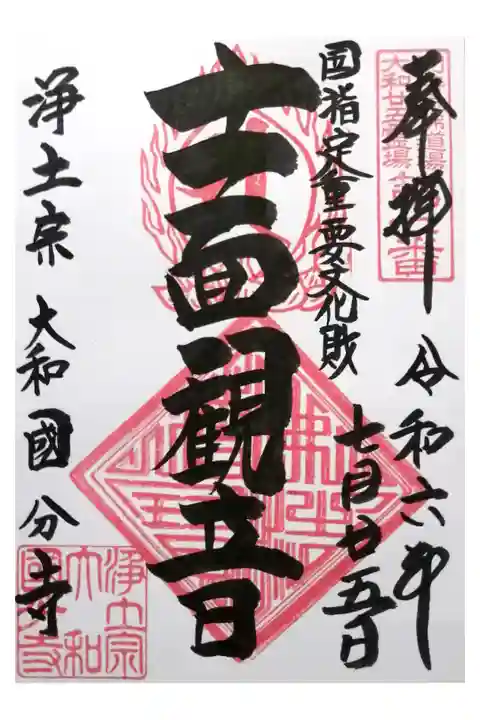 奉拝 令和六年
七月廿五日
国指定重要文化財
十一面観音
浄土宗 大和國分寺
浄土宗
大和
國分寺